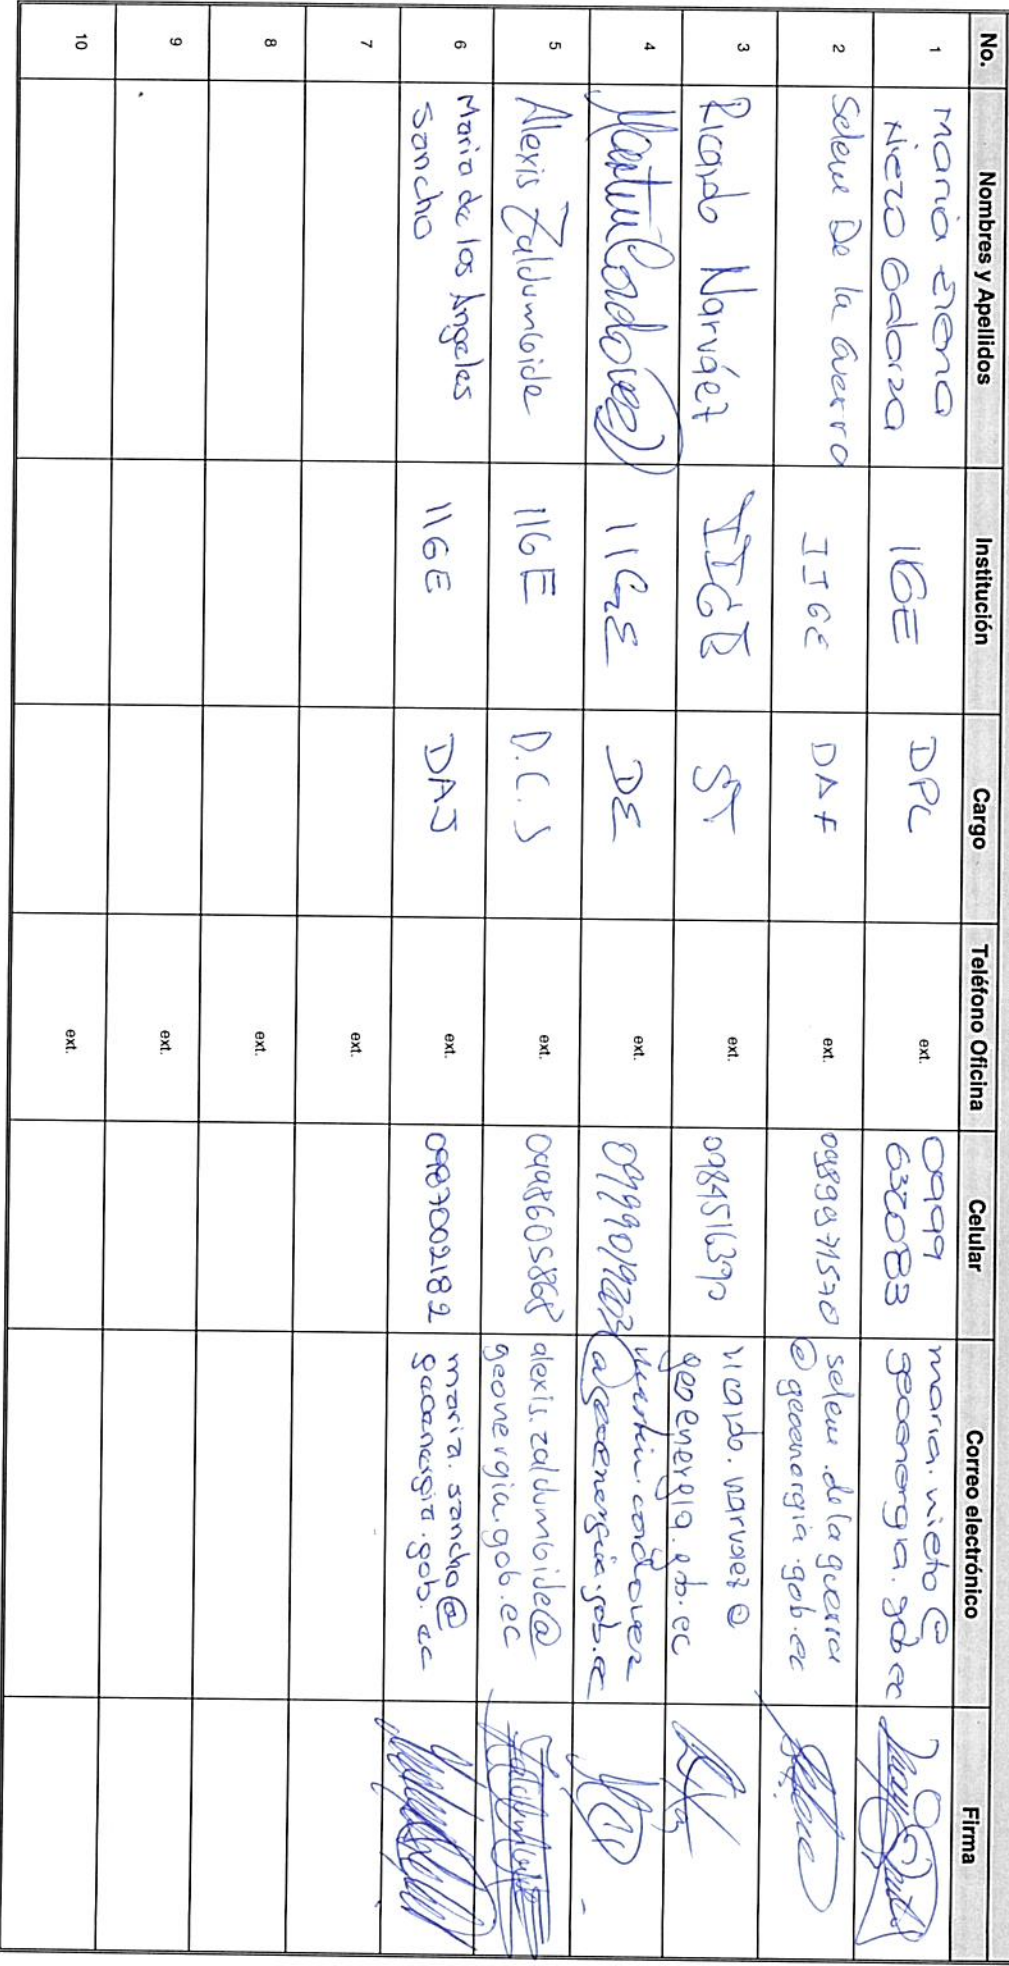 No. Nombres y Apellidos Institución Cargo Teléfono Oficina Celular Correo electrónico Firma
1 Maria Elena Nieto Galarza IIGE DPL ext. 0999 632083 maria.nieto@ geoenergia.gob.ec
2 Selene De la Guerra IIGE DAF ext. 0989971570 selene.delaguerra @geoenergia.gob.ec
3 Ricardo Narváez IIGE ST ext. 0984516390 ricardo.narvaez@ geoenergia.gob.ec
4 Martin Cordovez IIGE DE ext. martin.cordovez @geoenergia.gob.ec
5 Alexis Zaldumbide IIGE D.C.S ext. 0998605868 alexis.zaldumbide@ geonergia.gob.ec
6 Maria de los Angeles Sancho IIGE DAJ ext. 0987002182 maria.sancho@ geoenergia.gob.ec
7 ext.
8 ext.
9 ext.
10 ext.